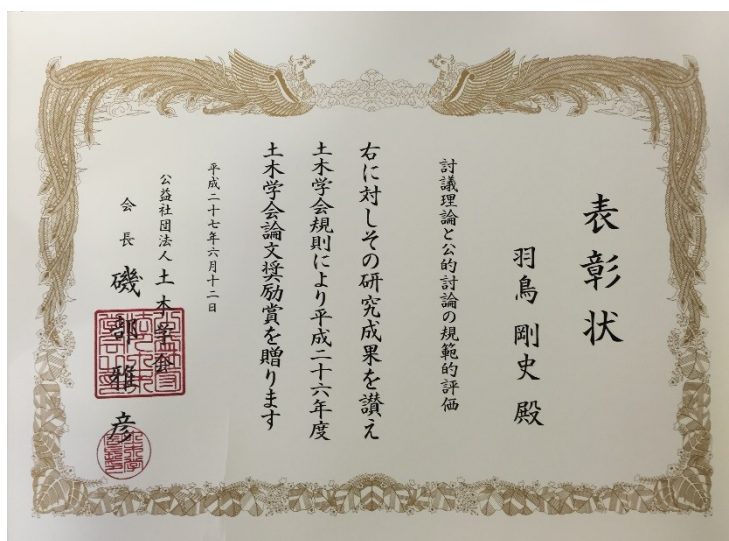 表彰状
羽鳥 剛史 殿
討議理論と公的討論の規範的評価
右に対しその研究成果を讃え
土木学会規則により平成二十六年度
土木学会論文奨励賞を贈ります
平成二十七年六月十二日
公益社団法人 土木学会
会長 磯部雅彦